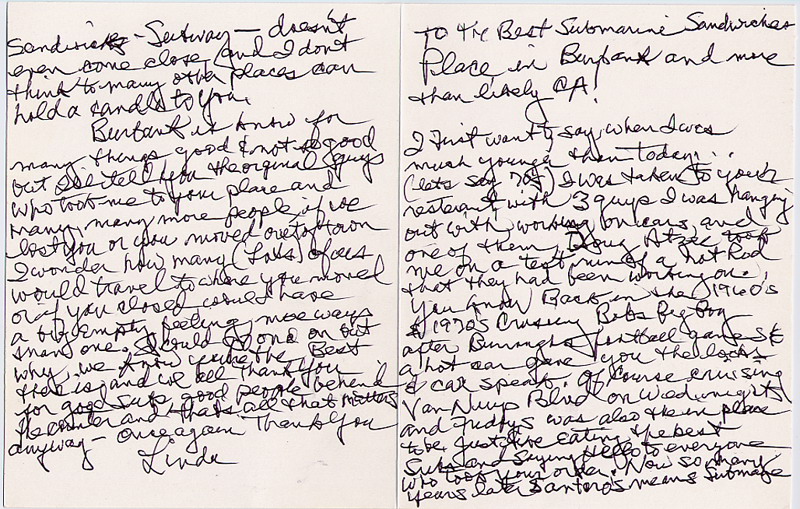 To the Best Submarine Sandwiches
Place in Burbank and more
than likely CA!
I Just want to say, when I was
mush younger then today...
(lets say 70s) I was taken to your
restaurant with 3 guys I was hanging
out with working on cars, and
one of them, Doug took
me on a test run of a Hot Rod
that they had been working on.
You know Back in the 1960's
& 1970s Crusing Bobs Big Boy
after Burroughs Football games &
a hot car gave you the looks
& car speak. Of course cruising
Van Nuys Blvd on Wed. nights
and was also the in place
to be. Just like Eating the best
Subs and saying Hello to everyone
who took your order. Now so many
years later Santoro's means submarine
Sandwiches - Subway - doesn't
even come close, and I don't
think to many other places can
hold a candle to you.
Burbank is know for
many things good & not so good
but I'll tell you the original guys
who took me to your place and
many, many more people, if we
lost you or you moved out of town
I wonder how many (Lots) of us
would travel to where you moved
or if you closed would have
a big empty feeling, more ways
than one. I could go on on but
why, we know you're the Best
there is, and we all thank you
for good subs good people behind
the counter and that's all that matters
anyway - once again Thank You
Linda